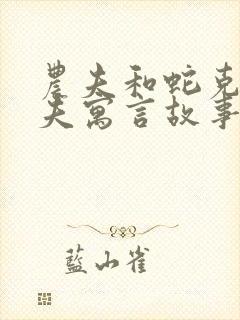 農夫和蛇克
夫寓言故事
藍小雀